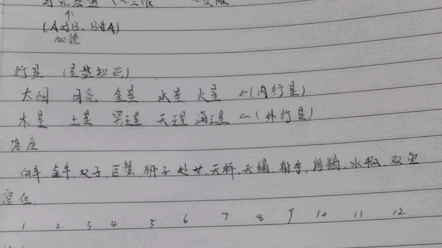 (A对B、B对A)
行星 (星盘知识)
太阳 月亮 金星 水星 火星 ←(内行星)
木星 土星 冥王星 天王星 海王星 ←(外行星)
落座
白羊、金牛、双子、巨蟹、狮子、处女、天秤、天蝎、射手、摩羯、水瓶、双鱼
宫位
1 2 3 4 5 6 7 8 9 10 11 12